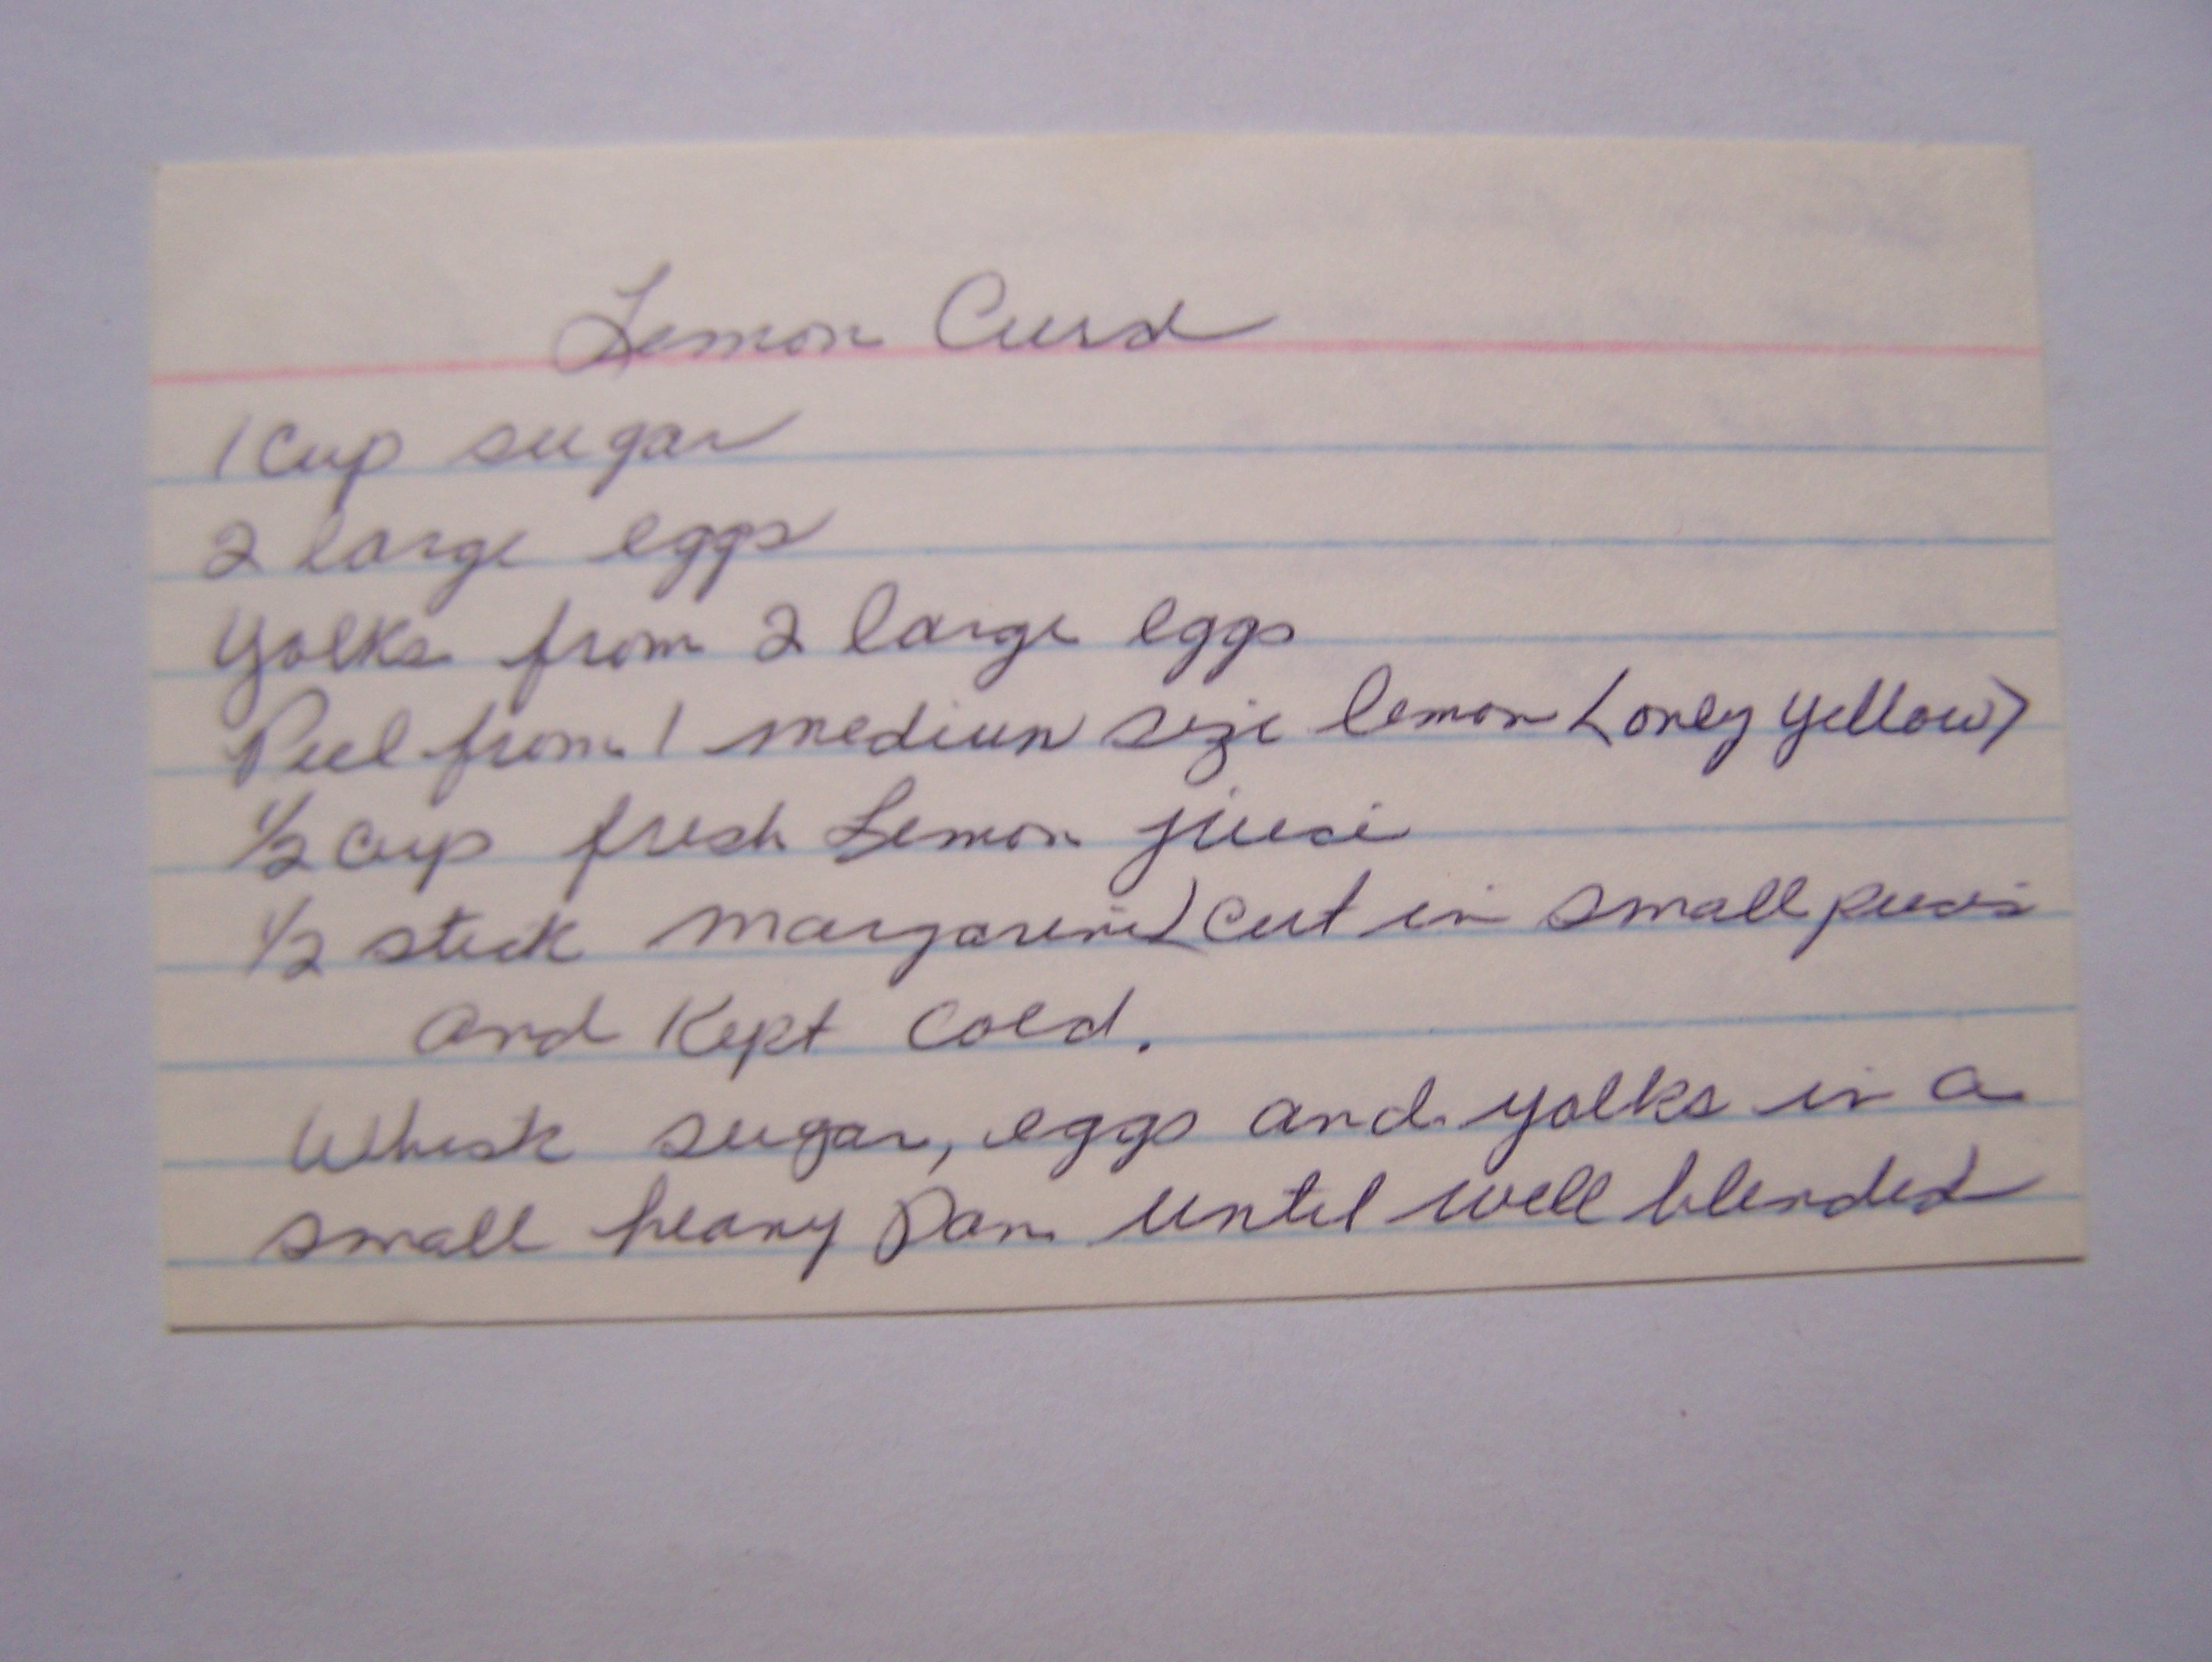 Lemon Curd
1 Cup sugar
2 large eggs
Yolks from 2 large eggs
Peel from 1 medium size lemon (only yellow)
1/2 cup fresh Lemon juice
1/2 stick margarine (cut in small pieces
and Kept Cold.
Whisk sugar, eggs and yolks in a
small heavy Pan until well blended